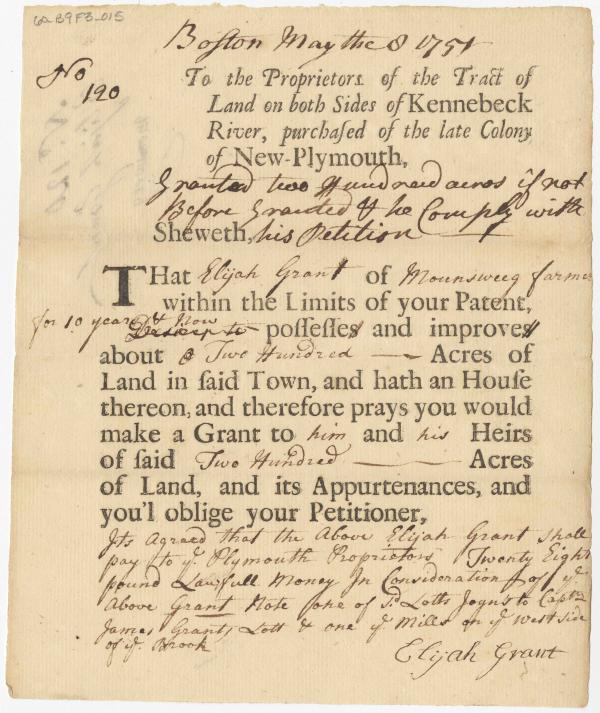 62-B9F3-015
Boston May the 8 1751
No
190
To the Proprietors of the Tract of
Land on both Sides of Kennebeck
River, purchaſed of the late Colony
of New-Plymouth,
Granted two Hundread acres if not
Before Granted & he Comply with
Sheweth, his Petition
THat Elijah Grant of Mounsweeg farmer
within the Limits of your Patent,
for 10 years & Now poſſeſſes and improves
about Two Hundred Acres of
Land in ſaid Town, and hath an Houſe
thereon, and therefore prays you would
make a Grant to him and his Heirs
of ſaid Two Hundred Acres
of Land, and its Appurtenances, and
you'l oblige your Petitioner,
Its Agreed that the Above Elijah Grant shall
pay to ye Plymouth Proprietors Twenty Eight
pound Lawfull Money In Consideration of ye
Above Grant Note one of sd Lotts Joyns to Captn
James Grants Lott & one ye Mills on ye west side
of ye Brook
Elijah Grant